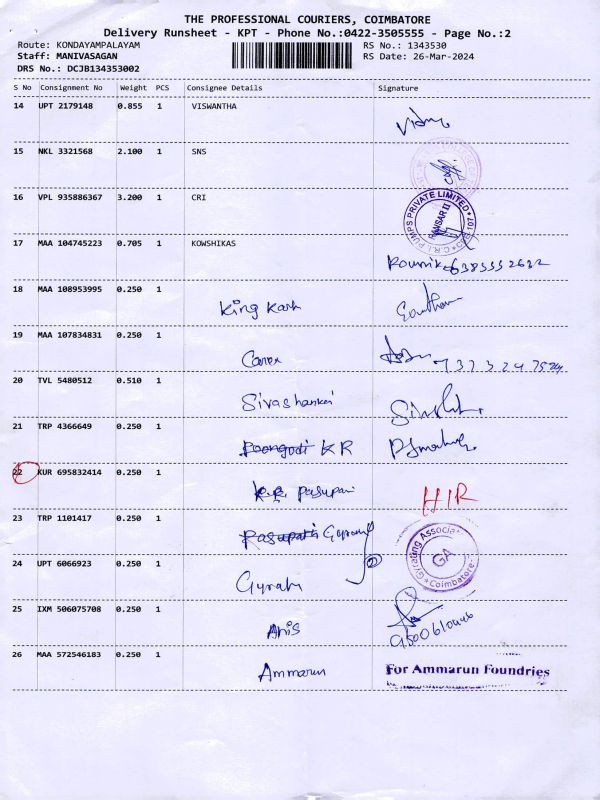 THE PROFESSIONAL COURIERS, COIMBATORE
Delivery Runsheet - KPT - Phone No.:0422-3505555 - Page No.:2
Route: KONDAYAMPALAYAM RS No.: 1343530
Staff: MANIVASAGAN RS Date: 26-Mar-2024
DRS No.: DCJB134353002
S No Consignment No Weight PCS Consignee Details Signature
14 UPT 2179148 0.855 1 VISWANTHA
15 NKL 3321568 2.100 1 SNS
16 VPL 935886367 3.200 1 CRI
C.R.I. PUMPS PRIVATE LIMITED
17 MAA 104745223 0.705 1 KOWSHIKAS
18 MAA 108953995 0.250 1 King Kark
19 MAA 107834831 0.250 1
20 TVL 5480512 0.510 1
21 TRP 4366649 0.250 1 Poongodi KR
22 KUR 695832414 0.250 1 K.R. pasupai HIR
23 TRP 1101417 0.250 1
24 UPT 6066923 0.250 1
Gyrating Associa
GA
Coimbatore
25 IXM 506075708 0.250 1 Anis
26 MAA 572546183 0.250 1 Ammarun For Ammarun Foundries